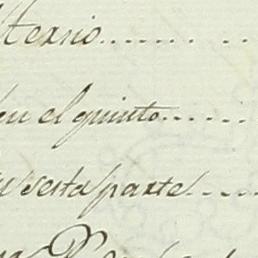 Tersio........
en el quinto......
sesta parte....